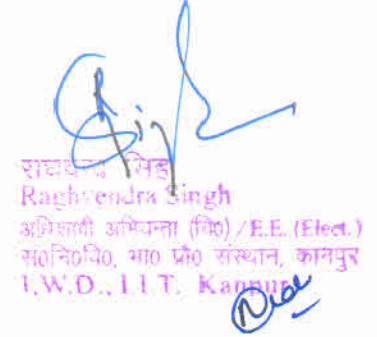 राघवेन्द्र सिंह
Raghvendra Singh
अधिशासी अभियन्ता (वि0)/E.E. (Elect.)
स0नि0वि0, भा0 प्रौ0 संस्थान, कानपुर
I.W.D., I.I.T. Kanpur